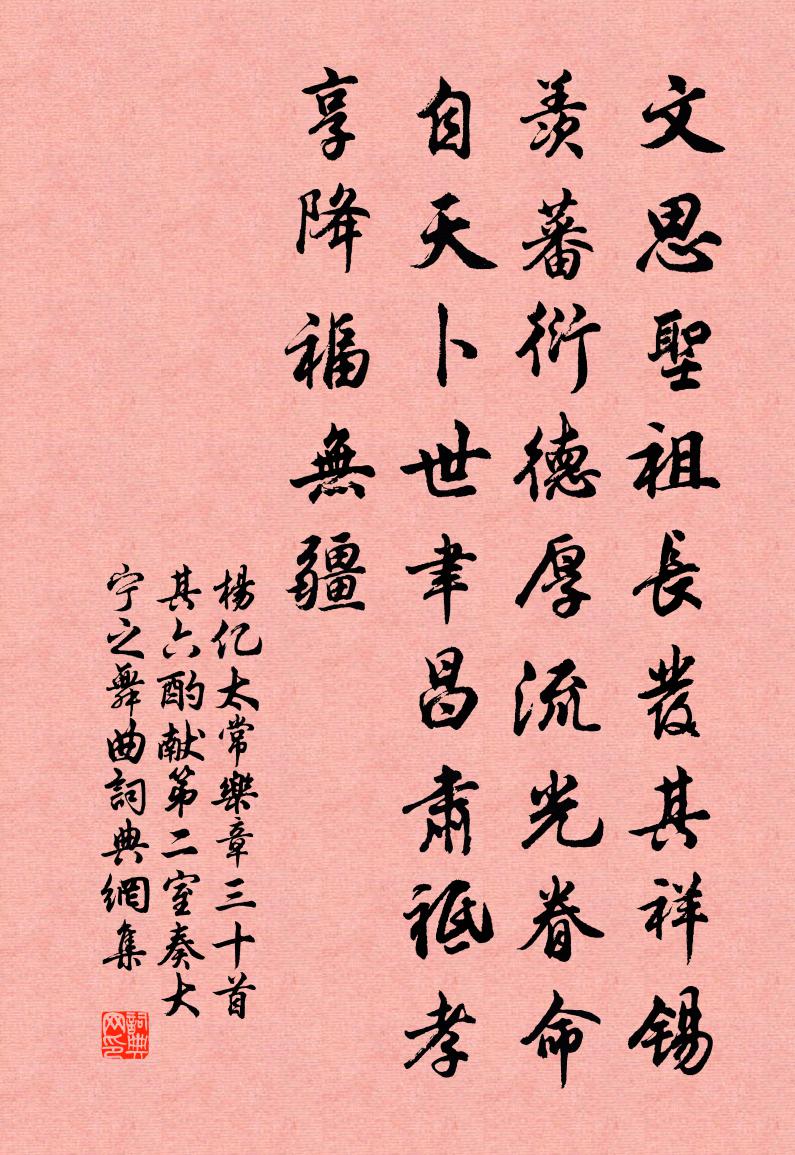 文思聖祖長發其祥錫
羨蕃衍德厚流光眷命
自天卜世聿昌肅祗孝
享降福無疆
楊亿太常樂章三十首
其六酌献第二室奏大
宁之舞曲詞典網集
詞典
网印